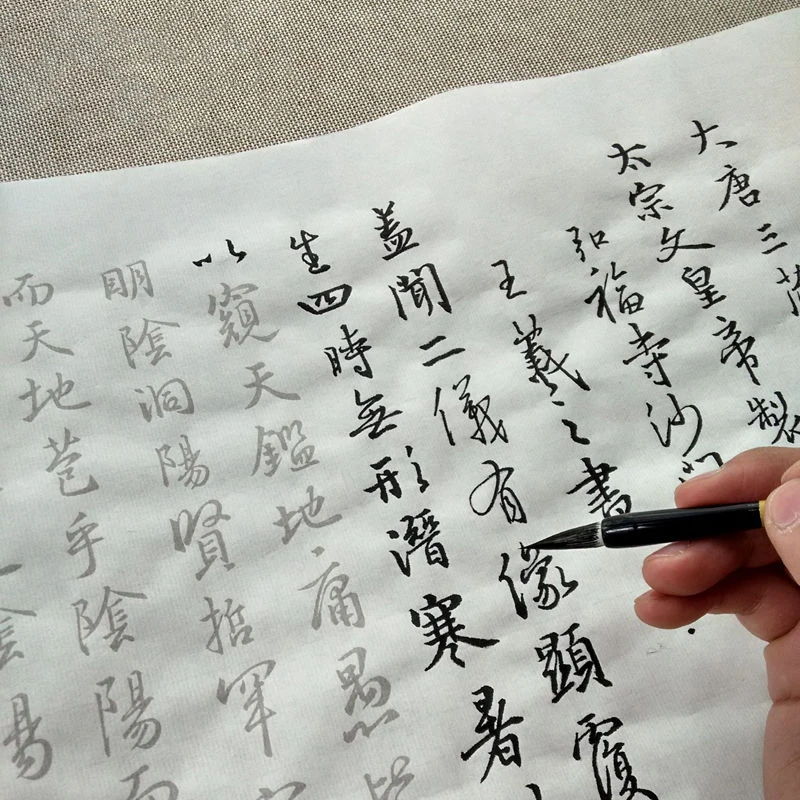 大唐三藏
太宗文皇帝製
弘福寺沙門
王羲之書
蓋聞二儀有像顯覆
生四時無形潛寒暑
以窺天鑑地庸愚皆
明陰洞陽賢哲罕
而天地苞乎陰陽而
陰易